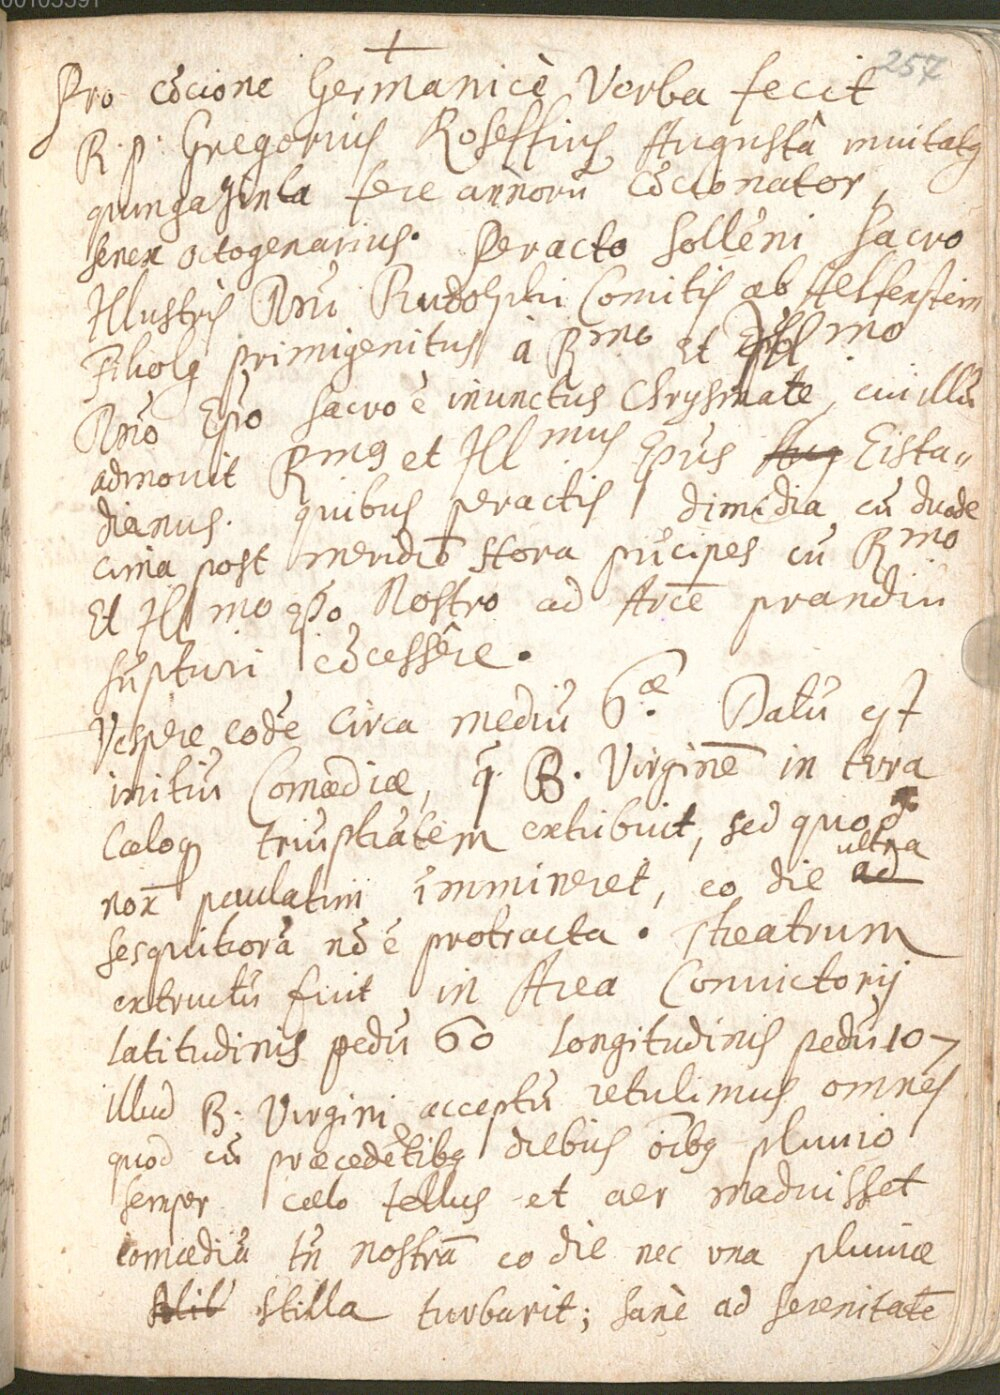 00103391
+
257
Pro cōcione Germanicè Verba fecit
R. P. Gregorius Roseffius Augustâ inuitatꝰ
quingaginta fere annorū Cōcionator,
senex octogenarius. Peracto sollēni sacro
Illustris Dn̄i Rudolphi Comitis ab Helfenstein
Filiolꝰ primigenitus à Rmo et Illmo
Dn̄o Ep̄o sacro ē inunctus Chrysmate, cui illū
admouit Rmꝰ et Illmus Ep̄us Aug Eista„
dianus. quibus peractis dimidia cū duode
cima post meridiē Hora prīcipes cū Rmo
Et Illmo Ep̄o Nostro ad Arcē prandiū
sūpturi cōcessêre.
Vespere eodē circa mediū 6.æ Datū est
initiū Comædiæ, q̄ B. Virginē in terra
Cæloq triūphātem exhibuit, sed quod
nox paulatim īmmineret, eo die ad ultra
sesquihorā nō ē protracta. theatrum
extructū fuit in Area Conuictorij
latitudinis pedū 60 longitudinis pedū 107
illud B. Virgini acceptū retulimus omnes
quod cū præcedētibꝰ diebus oībꝰ pluuio
semper cælo tellus et aer maduisset
comædiā tn̄ nostrā eo die nec vna pluuiæ
stilla turbarit; sanè ad serenitatē